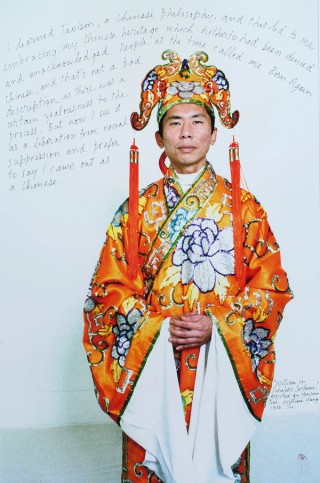 I learned Taoism, a Chinese philosophy, and this led to me
embracing my Chinese heritage which hitherto had been denied
and unacknowledged. People at the time called me Born Again
Chinese, and that's not a bad
description as there was a
certain zealousness to the
process. But now I see it
as a liberation from racial
suppression and prefer
to say I came out as
a Chinese.
William in
Costume
William Yang